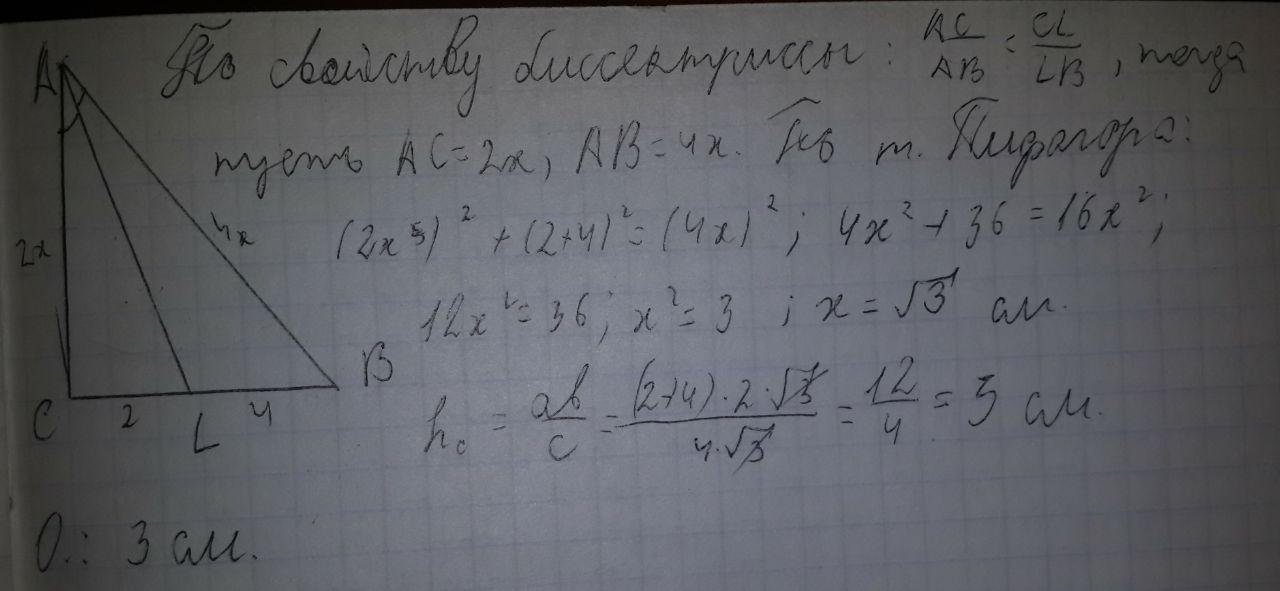 По свойству биссектриссы: AC/AB = CL/LB, тогда
пусть AC=2x, AB=4x. По т. Пифагора:
(2x)² + (2+4)² = (4x)²; 4x² + 36 = 16x²;
12x² = 36; x² = 3; x = √3 см.
h_c = ab/c = (2+4)·2·√3/4·√3 = 12/4 = 3 см.
A
2x
4x
B
C
2
L
4
О.: 3 см.